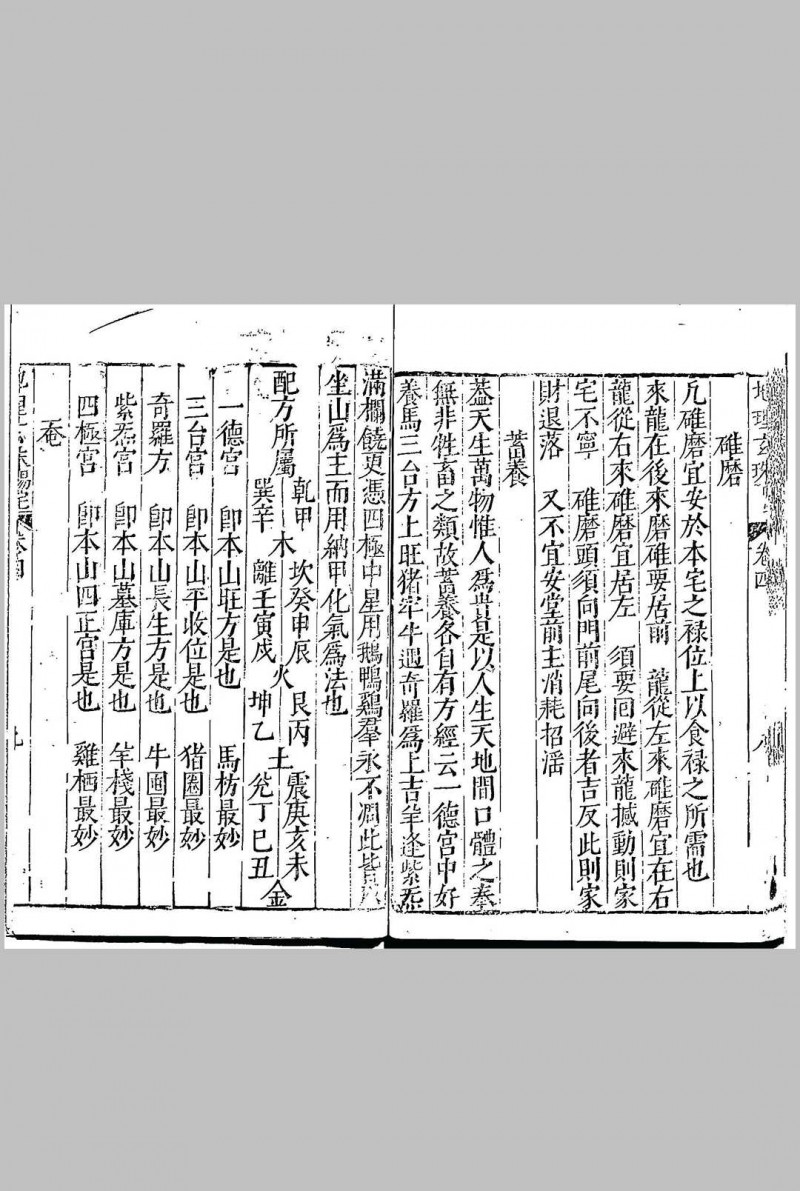 地理玄珠 卷四 八
碓磨
凢碓磨宜安於本宅之禄位上以食禄之所需也
來龍在後來磨碓要居前　龍從左來碓磨宜在右
龍從右來碓磨宜居左　須要回避來龍撼動則家
宅不寧　碓磨頭須向門前尾向後者吉反此則家
財退落　又不宜安堂前主消耗招滛
蓄養
葢天生萬物惟人爲貴是以人生天地間口體之奉
無非牲畜之類故蓄養各自有方經云一德宮中好
養馬三台方上旺猪牢牛遇奇羅爲上吉羊逢紫炁
滿欄饒更憑四極中星用鵝鴨鷄羣永不凋此皆以
坐山爲主而用納甲化氣爲法也
配方所屬　乾甲巽辛木　坎癸申辰離壬寅戍火　艮丙坤乙土　震庚亥未兊丁巳丑金
一德宮　卽本山旺方是也　馬枋最妙
三台宮　卽本山平收位是也　猪圈最妙
奇羅方　卽本山長生方是也　牛圃最妙
紫炁宮　卽本山墓庫方是也　羊棧最妙
四極宮　卽本山四正宮是也　雞栖最妙
菴
地理玄珠陽宅 卷四 九